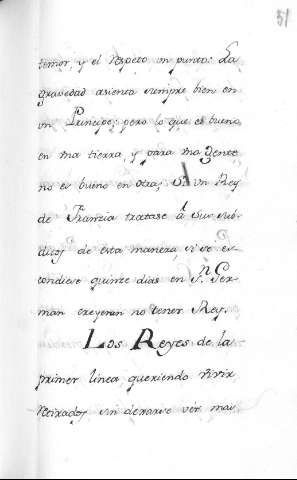 51
temor, y el respeto un punto: La
gravedad asienta siempre bien en
un Principe; pero lo que es bueno
en una tierra, y para una gente
no es bueno en otra; Si un Rey
de Francia tratase á sus sub-
ditos de esta manera, si se es-
condiese quinze dias en Sn. Ger-
man creyeran no tener Rey.
Los Reyes de la
primer linea queriendo vivir
retirados sin dexarse ver mas